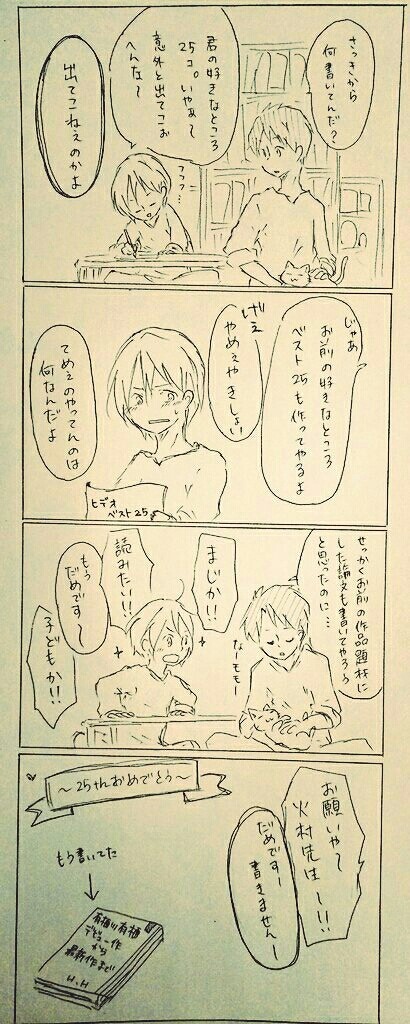 さっきから
何書いてんだ?
君の好きなところ
25コ。いやぁ〜
意外と出てこお
へんな〜
フフフ…
出てこねぇのかよ
じゃあ
お前の好きなところ
ベスト25も作ってやるよ
げぇ
やめぇやきしょい
てめぇのやってんのは
何なんだよ
ヒデオ
ベスト25
せっかくお前の作品題材に
した論文も書いてやろう
と思ったのに…
なーももー
まじか!!
読みたい!!
もう
だめです〜
子どもか!!
お願いや〜
火村先生〜!!
だめですー
書きませんー
〜25thおめでとう〜
もう書いてた
有栖川有栖
デビュー作
から
最新作まで
H.H